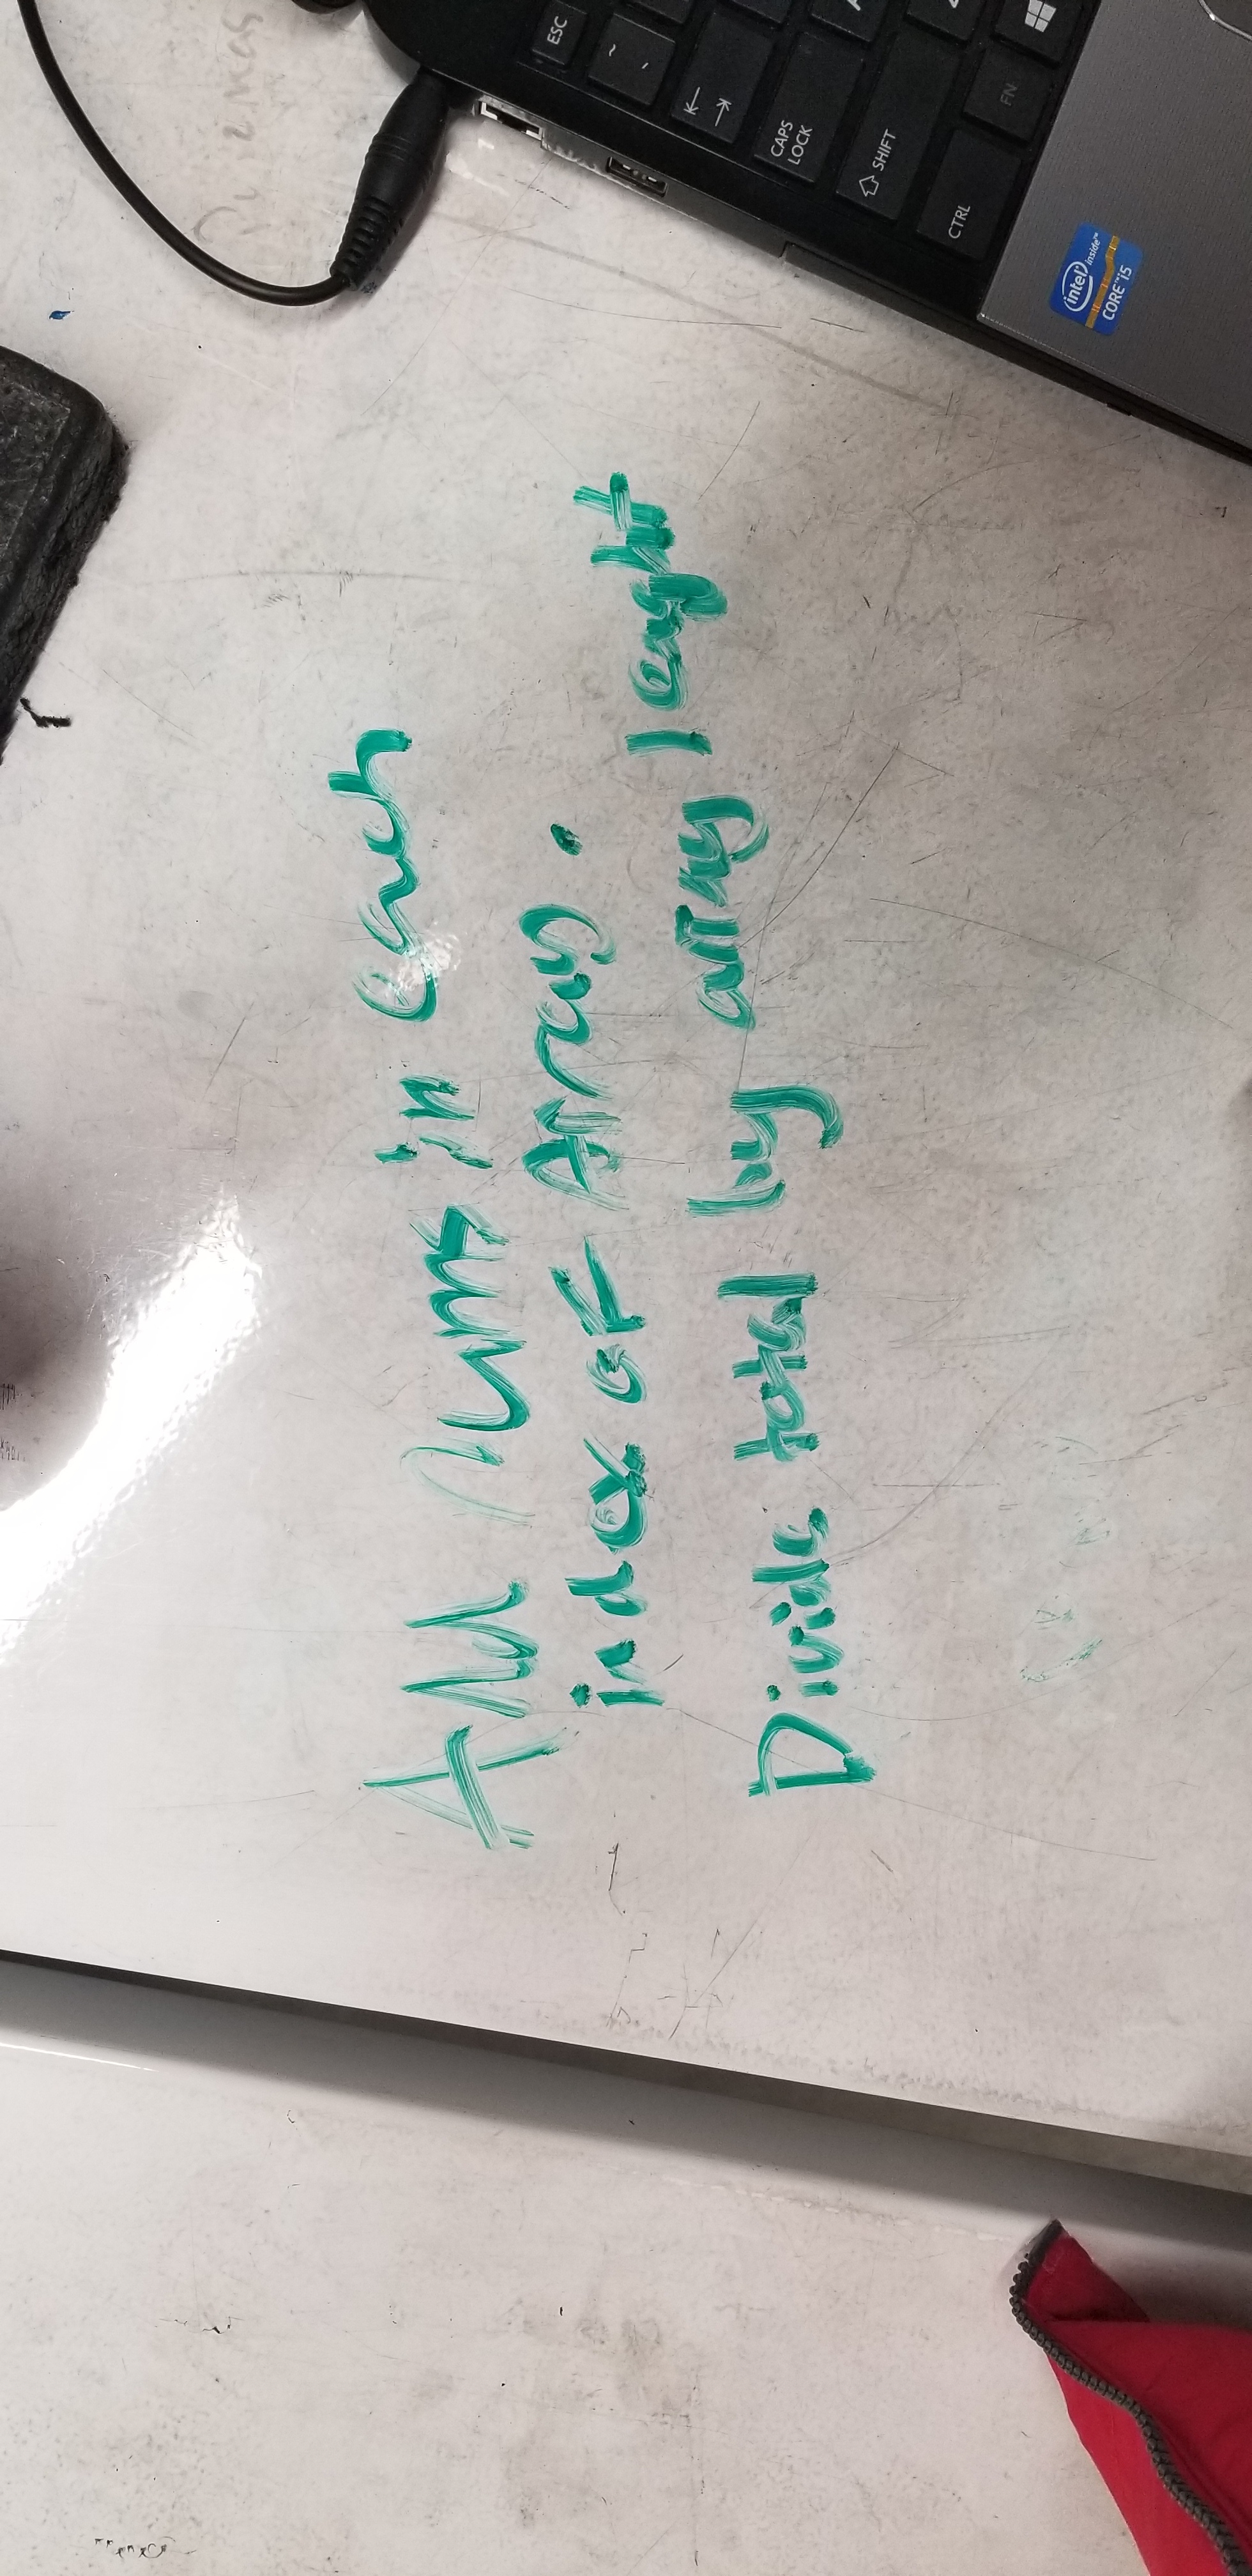 All nums in each
index of Array.
Divide total by array lenght
ESC
~
CAPS LOCK
SHIFT
FN
CTRL
intel inside™
CORE™ i5